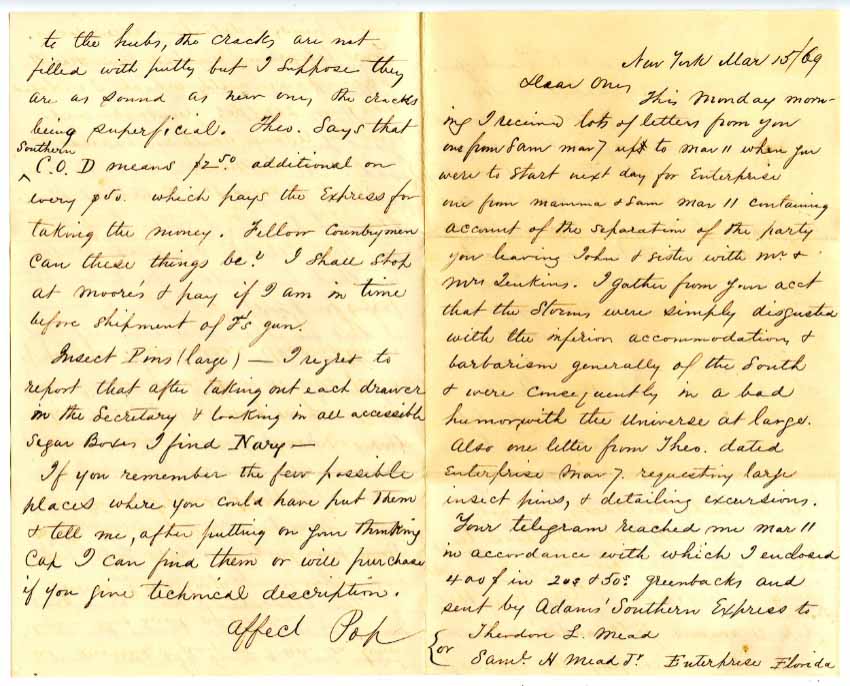 New York Mar 15/69
Dear Ones
This Monday morn-
ing I received lots of letters from you
one from Sam Mar 7 up to Mar 11 when you
were to start next day for Enterprise
one from mamma & Sam Mar 11 containing
account of the separation of the party
you leaving John & sister with Mr &
Mrs Jenkins. I gather from your acct
that the Storms were simply disgusted
with the inferior accommodation, &
barbarism generally of the South
& were consequently in a bad
humor with the Universe at large.
Also one letter from Theo. dated
Enterprise Mar 7. requesting large
insect pins, & detailing excursions.
Your telegram reached me Mar 11
in accordance with which I enclosed
400 $ in 20s & 50s greenbacks and
sent by Adams' Southern Express to
Theodore L. Mead
or
Saml. H Mead Jr. Enterprise Florida
to the hubs, the cracks are not
filled with putty but I suppose they
are as sound as new ones the cracks
being superficial. Theo. Says that
Southern
^ C.O.D means $2.50 additional on
every $50. which pays the Express for
taking the money. Fellow Countrymen
can these things be? I shall stop
at Moore's & pay if I am in time
before shipment of T's gun.
Insect Pins (large) — I regret to
report that after taking out each drawer
in the Secretary & looking in all accessible
Segar Boxes I find Nary —
If you remember the few possible
places where you could have put them
& tell me, after putting on your thinking
Cap I can find them or will purchase
if you give technical description.
affect Pop